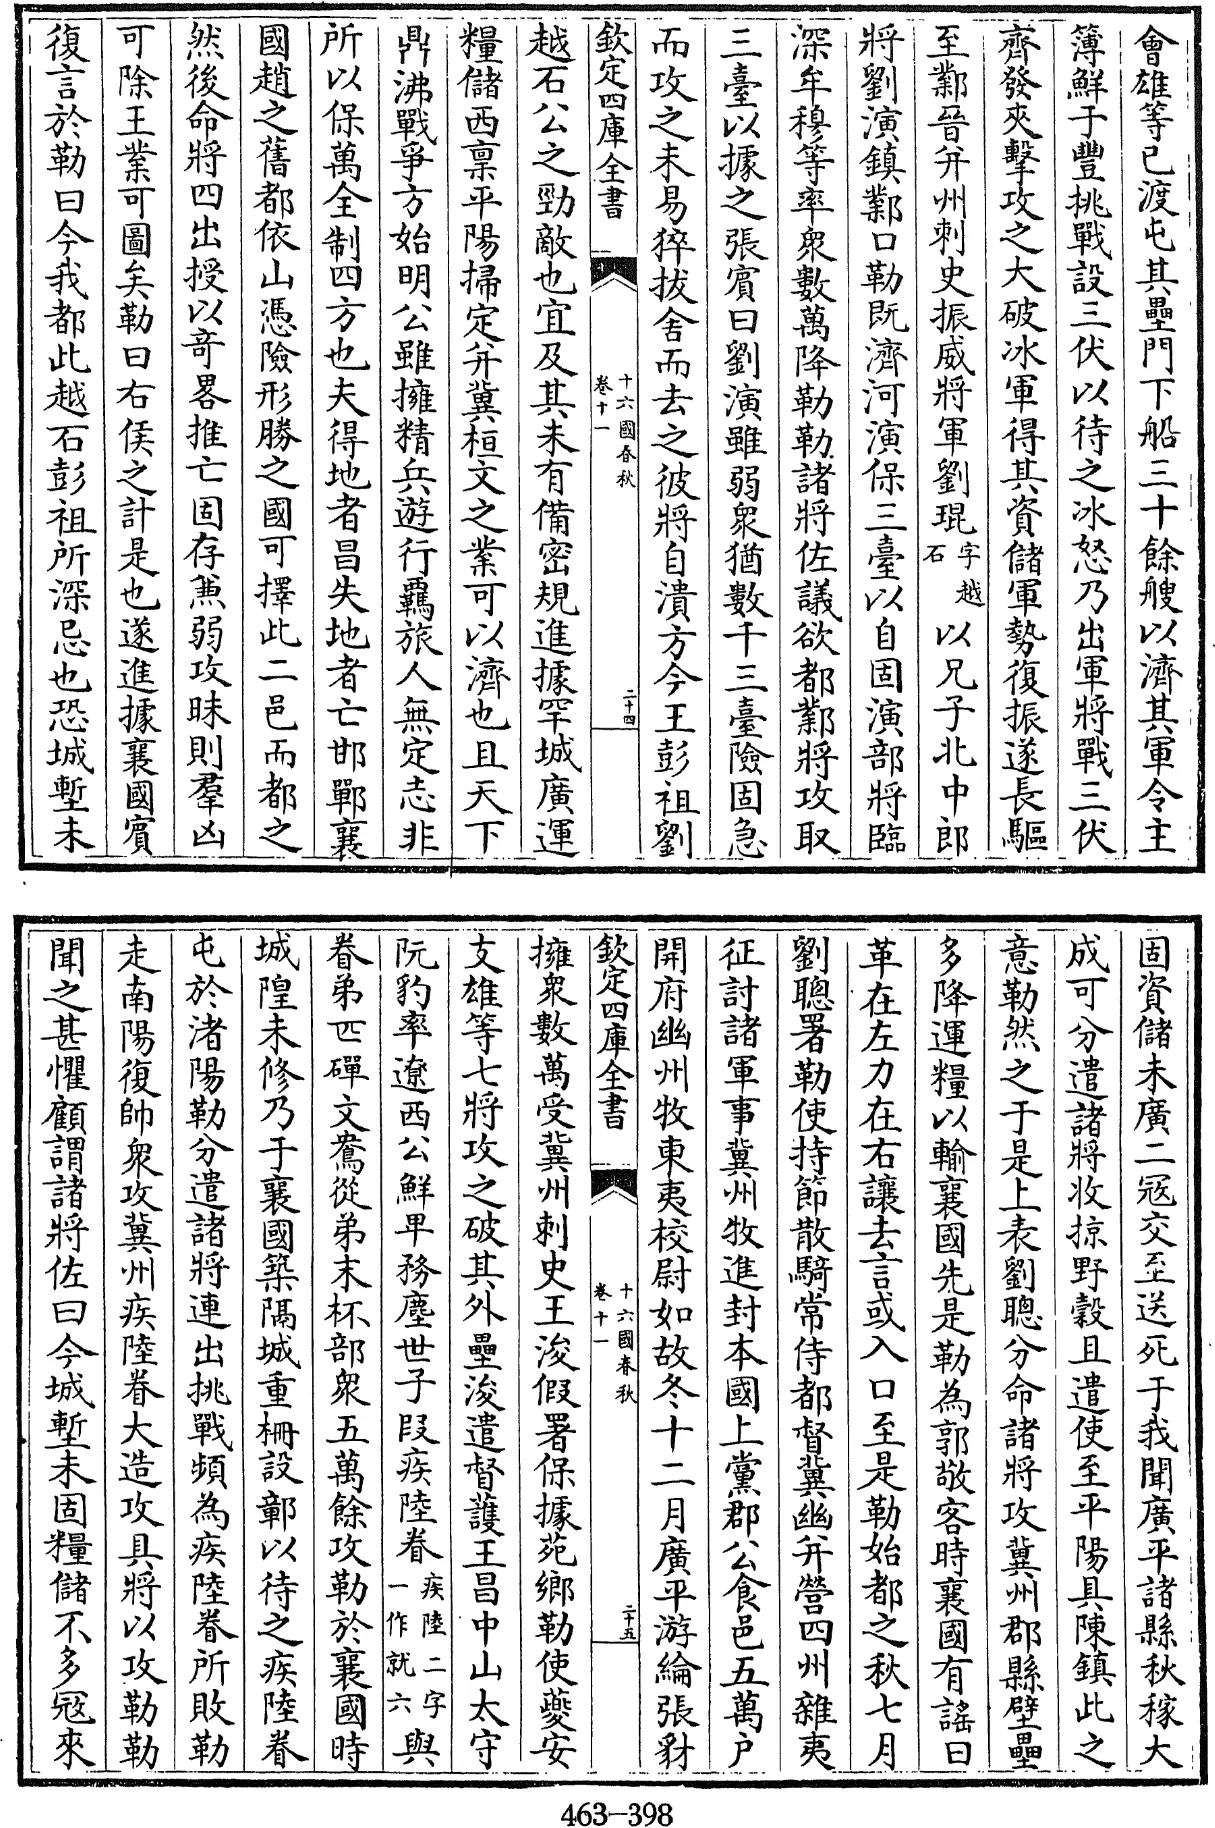 會雄等已渡屯其壘門下船三十餘艘以濟其軍令主
簿鮮于豐挑戰設三伏以待之冰怒乃出軍將戰三伏
齊發夾擊攻之大破冰軍得其資儲軍勢復振遂長驅
至鄴晉并州刺史振威將軍劉琨字越石以兄子北中郎
將劉演鎮鄴口勒既濟河演保三臺以自固演部將臨
深牟穆等率衆數萬降勒勒諸將佐議欲都鄴將攻取
三臺以據之張賔曰劉演雖弱衆猶數千三臺險固急
而攻之未易猝拔舍而去之彼將自潰方今王彭祖劉
欽定四庫全書
十六國春秋
卷十一
二十四
越石公之勁敵也宜及其未有備密規進據罕城廣運
糧儲西禀平陽掃定并冀桓文之業可以濟也且天下
鼎沸戰爭方始明公雖擁精兵遊行羇旅人無定志非
所以保萬全制四方也夫得地者昌失地者亡邯鄲襄
國趙之舊都依山憑險形勝之國可擇此二邑而都之
然後命將四出授以奇畧推亡固存兼弱攻昧則羣凶
可除王業可圖矣勒曰右侯之計是也遂進據襄國賔
復言於勒曰今我都此越石彭祖所深忌也恐城塹未
固資儲未廣二冦交至送死于我聞廣平諸縣秋稼大
成可分遣諸將收掠野穀且遣使至平陽具陳鎮此之
意勒然之于是上表劉聰分命諸將攻冀州郡縣壁壘
多降運糧以輸襄國先是勒為郭敬客時襄國有謡曰
革在左力在右讓去言或入口至是勒始都之秋七月
劉聰署勒使持節散騎常侍都督冀幽并營四州雜夷
征討諸軍事冀州牧進封本國上黨郡公食邑五萬户
開府幽州牧東夷校尉如故冬十二月廣平游綸張豺
欽定四庫全書
十六國春秋
卷十一
二十五
擁衆數萬受冀州刺史王浚假署保據苑鄉勒使夔安
支雄等七將攻之破其外壘浚遣督護王昌中山太守
阮豹率遼西公鮮卑務塵世子段疾陸眷疾陸二字一作就六與
眷弟匹磾文鴦從弟末杯部衆五萬餘攻勒於襄國時
城隍未修乃于襄國築隔城重柵設鄣以待之疾陸眷
屯於渚陽勒分遣諸將連出挑戰頻為疾陸眷所敗勒
走南陽復帥衆攻冀州疾陸眷大造攻具將以攻勒勒
聞之甚懼顧謂諸將佐曰今城塹未固糧儲不多冦來
463-398